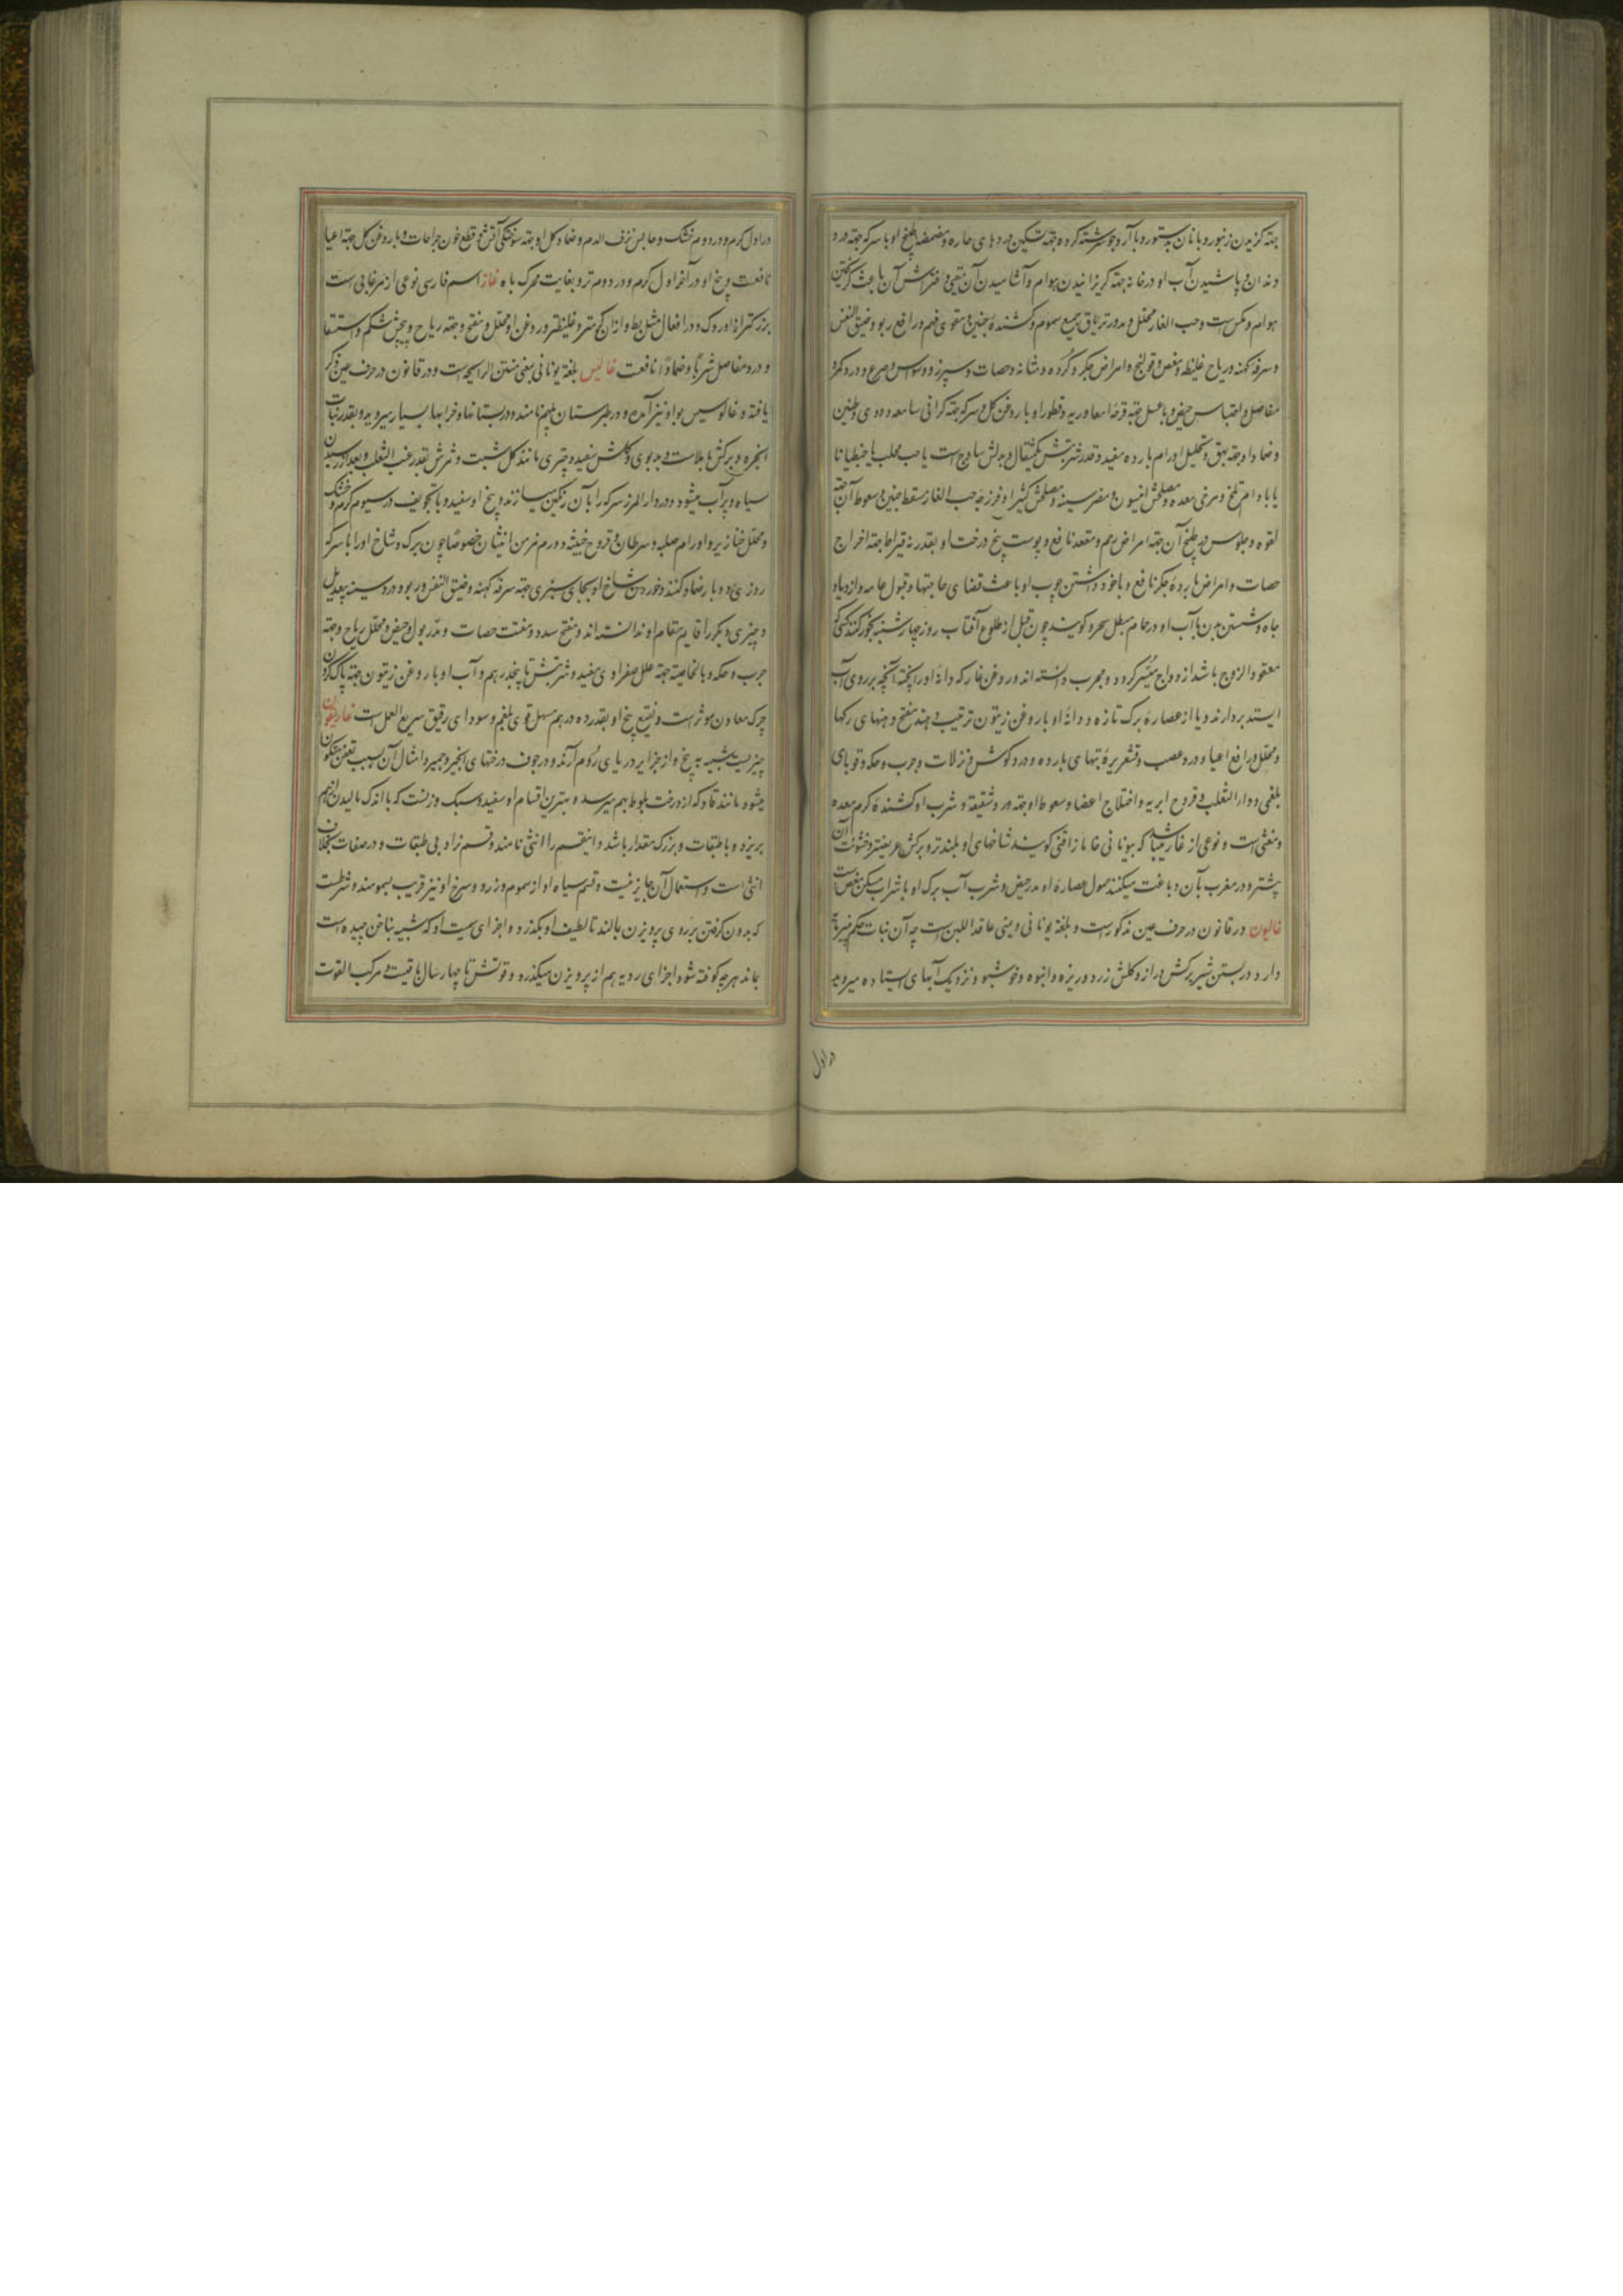 جهته کزیدن زنبور و با نان بدستور و با آرد جو سرشته کرده جهته تسکین دردهای حاره و مضمضه طبیخ او با سرکه جهته درد
دندان و پاشیدن آب او در خانه جهته کریزانیدن هوام و آشامیدن آن مقیئ و افتراش آن باعث کریختن
هوام و مکس است و حب الغار محلل و مدر و تریاق جمیع سموم و کشنده جنین و مقوی فهم و رافع ربو و ضیق النفس
و سرفه کهنه و ریاح غلیظه و مغص و قولنج و امراض جکر و کرده و مثانه و حصات و سپرز و وسواس و صرع و درد کمر و
مفاصل و احتباس حیض و با عسل جهته قرحه امعا و ریه و قطور او با روغن کل و سرکه جهته کرانی سامعه و دوی و طنین
و ضماد او جهته بهق و تحلیل اورام بارده مفید و قدر شربتش یکمثقال و بدلش ساذج است یا حب محلب یا جنطیانا
یا بادام تلخ و مرخی معده و مصلحش انیسون و مضر سینه و مصلحش کثیرا و فرزجه حب الغار مسقط جنین و سعوط آن جهته
لقوه و جلوس در طبخ آن جهته امراض رحم و مقعد نافع و پوست بیخ درخت او بقدر نه قیراط جهته اخراج
حصات و امراض بارده جکر نافع و با خود داشتن چوب او باعث قضای حاجتها و قبول عامه و ازدیاد
جاه و شستن بدن بآب او در حمام مبطل سحر و کویند چون قبل از طلوع آفتاب روز چهارشنبه بخور کنند کسی که
معقود الزوج باشد ازدواج میسّر کردد و مجرب دانسته اند و روغن غار که دانهٔ او را پخته آنچه بر روی آب
ایستد بردارند و یا از عصارهٔ برک تازه و دانهٔ او با روغن زیتون ترتیب دهند مفتح دهنهای رکها
و محلل و رافع اعیا و درد عصب و قشعریرهٔ تبهای بارده و درد کوش و نزلات و جرب و حکه و قوبای
بلغمی و داء الثعلب و قروح ابریه و اختلاج اعضا و سعوط او جهته درد شقیقه و شرب او کشندهٔ کرم معده
و مغثی است و نوعی از غار میباشد که بیونانی خاماذافنی کویند شاخهای او بلندتر و برکش عریضتر و خشونت آن
بیشتر و در مغرب بآن دباغت میکنند حمول عصارهٔ او مدر حیض و شرب آب برک او با شراب مسکن مغص است
غالیون در قانون در حرف عین مذکور است و بلغة یونانی و معنی عاقد اللبن است چه آن نبات حکم پنیر مایه
دارد در بستن شیر برکش دراز و کلش زرد و ریزه و انبوه و خوشبو و نزدیک آبهای ایستاده میروید
در اول
در اول کرم و در دوم خشک و حابس نزف الدم و ضماد کل او جهته سوختکی آتش و قطع خون جراحات و با روغن کل جهته اعیا
نافعست و بیخ او در آخر اول کرم و در دوم تر و بغایت محرک باه غاز اسم فارسی نوعی از مرغابی است
بزرکتر از اوردک و در افعال مثل بط و از آن کرمتر و غلیظتر و روغن او محلل و مفتح و جهته ریاح و پیچش شکم و استسقا
و درد مفاصل شرباً و ضماداً نافعست غالیس بلغة یونانی بمعنی منتن الرایحه است و در قانون در حرف عین ذکر
یافته و غالوسیس بواو نیز آمده و در طبرستان پلم نامند و در بستانها و خرابها بسیار میروید و بقدر نبات
انجره و برکش با ملاست و بدبوی و کلش سفید و چتری مانند کل شبت و ثمرش بقدر عنب الثعلب و بعد از رسیدن
سیاه و پرآب میشود و در دار المرز سرکه را بآن رنکین میسازند و بیخ او سفید و با تجویف در سیوم کرم و خشک
و محلل خنازیر و اورام صلبه و سرطان و قروح خبیثه و ورم مزمن انثیان خصوصاً چون برک و شاخ او را با سرکه
روزی دو بار ضماد کنند و خوردن شاخ او بجای سبزی جهته سرفه کهنه و ضیق النفس و ربو و درد سینه بیعدیل
و چیزی دیکر را قایم مقام او ندانسته اند و مفتح سدد و مفتت حصات و مدر بول و حیض و محلل ریاح و جهته
جرب و حکه و بالخاصیة جهته علل صفراوی مفید و شربتش تا پنجدرهم و آب او با روغن زیتون جهته پاک کردن
چرک معادن موثر است و نقیع بیخ او بقدر ده درهم مسهل قوی بلغم و سودای رقیق سریع العمل است غاریقون
چیزیست شبیه به بیخ و از جزایر دریای روم آرند و در جوف درختهای انجیر و جمیز و امثال آن بسبب تعفن متکون
میشود مانند قاو که از درخت بلوط بهم میرسد و بهترین اقسام او سفید و سبک وزنست که با اندک مالیدن از هم
بریزد و با طبقات و بزرک مقدار باشد و اینقسم را انثی نامند و قسم نر او بی طبقات و در صفات بخلاف
انثی است و استعمال آن جایز نیست و قسم سیاه او از سموم و زرد و سرخ او نیز قریب بسموم اند و شرطست
که بدون کرفتن بر روی پرویزن بمالند تا لطیف او بکذرد و اجزای سمیت او که شبیه بناخن چیده است
بماند هرچه کوفته شود اجزای ردیه هم از پرویزن میکذرد و قوتش تا چهار سال باقیست و مرکب القوت